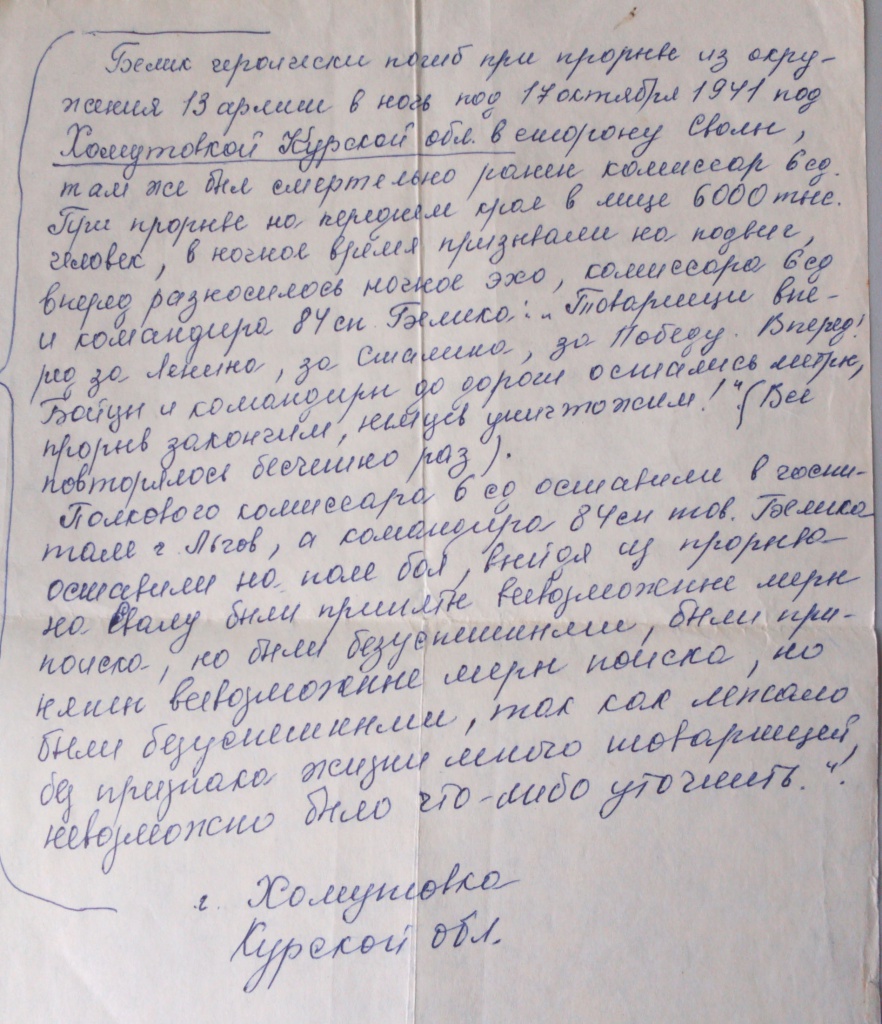 Белик героически погиб при прорыве из окру-
жения 13 армии в ночь под 17 октября 1941 под
Хомутовкой Курской обл. в сторону Свапы,
там же был смертельно ранен комиссар 6 сд.
При прорыве на переднем крае в лице 6000 тыс.
человек, в ночное время призывали на подвиг,
вперед разносилось ночное эхо, комиссара 6 сд
и командира 84 сп Белика: „Товарищи впе-
ред за Ленина, за Сталина, за Победу. Вперед!
Бойцы и командиры до дороги остались метры,
прорыв закончим, немцев уничтожим!“ (Все
повторялось бесчетно раз).
Полкового комиссара 6 сд оставили в госпи-
тале г. Льгов, а командира 84 сп тов. Белика
оставили на поле боя, выйдя из прорыва
на Свапу были приняты всевозможные меры
поиска, но были безуспешными, были при-
няты всевозможные меры поиска, но
были безуспешными, так как лежало
без признака жизни много товарищей,
невозможно было что-либо уточнить.“.
г. Хомутовка
Курской обл.